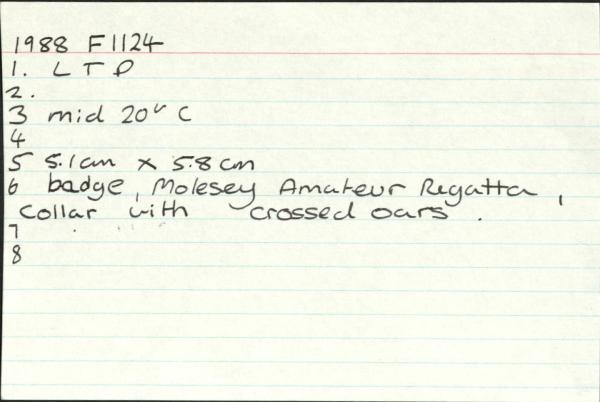 1988 F1124
1. L T D
2.
3 mid 20th C
4
5 5.1cm x 5.8cm
6 badge, Molesey Amateur Regatta,
collar with crossed oars.
7
8